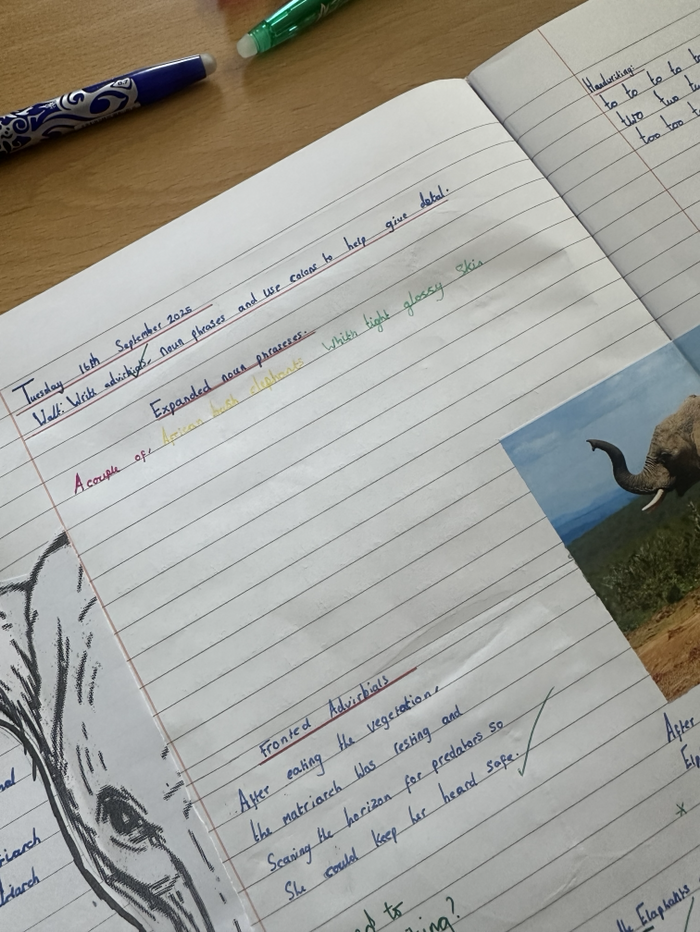 Tuesday 16th September 2025
Walt: Write advirbials, noun phrases and use colons to help give detal.
Expanded noun phrases.
A couple of, African bush elephants Whith tight glossy skin
Fronted Advirbials
After eating the vegetation,
the matriarch was resting and
Scaning the horizon for predators so
She could keep her heard safe.
riarch
Handwriting:
to to to to
two two
too too
After